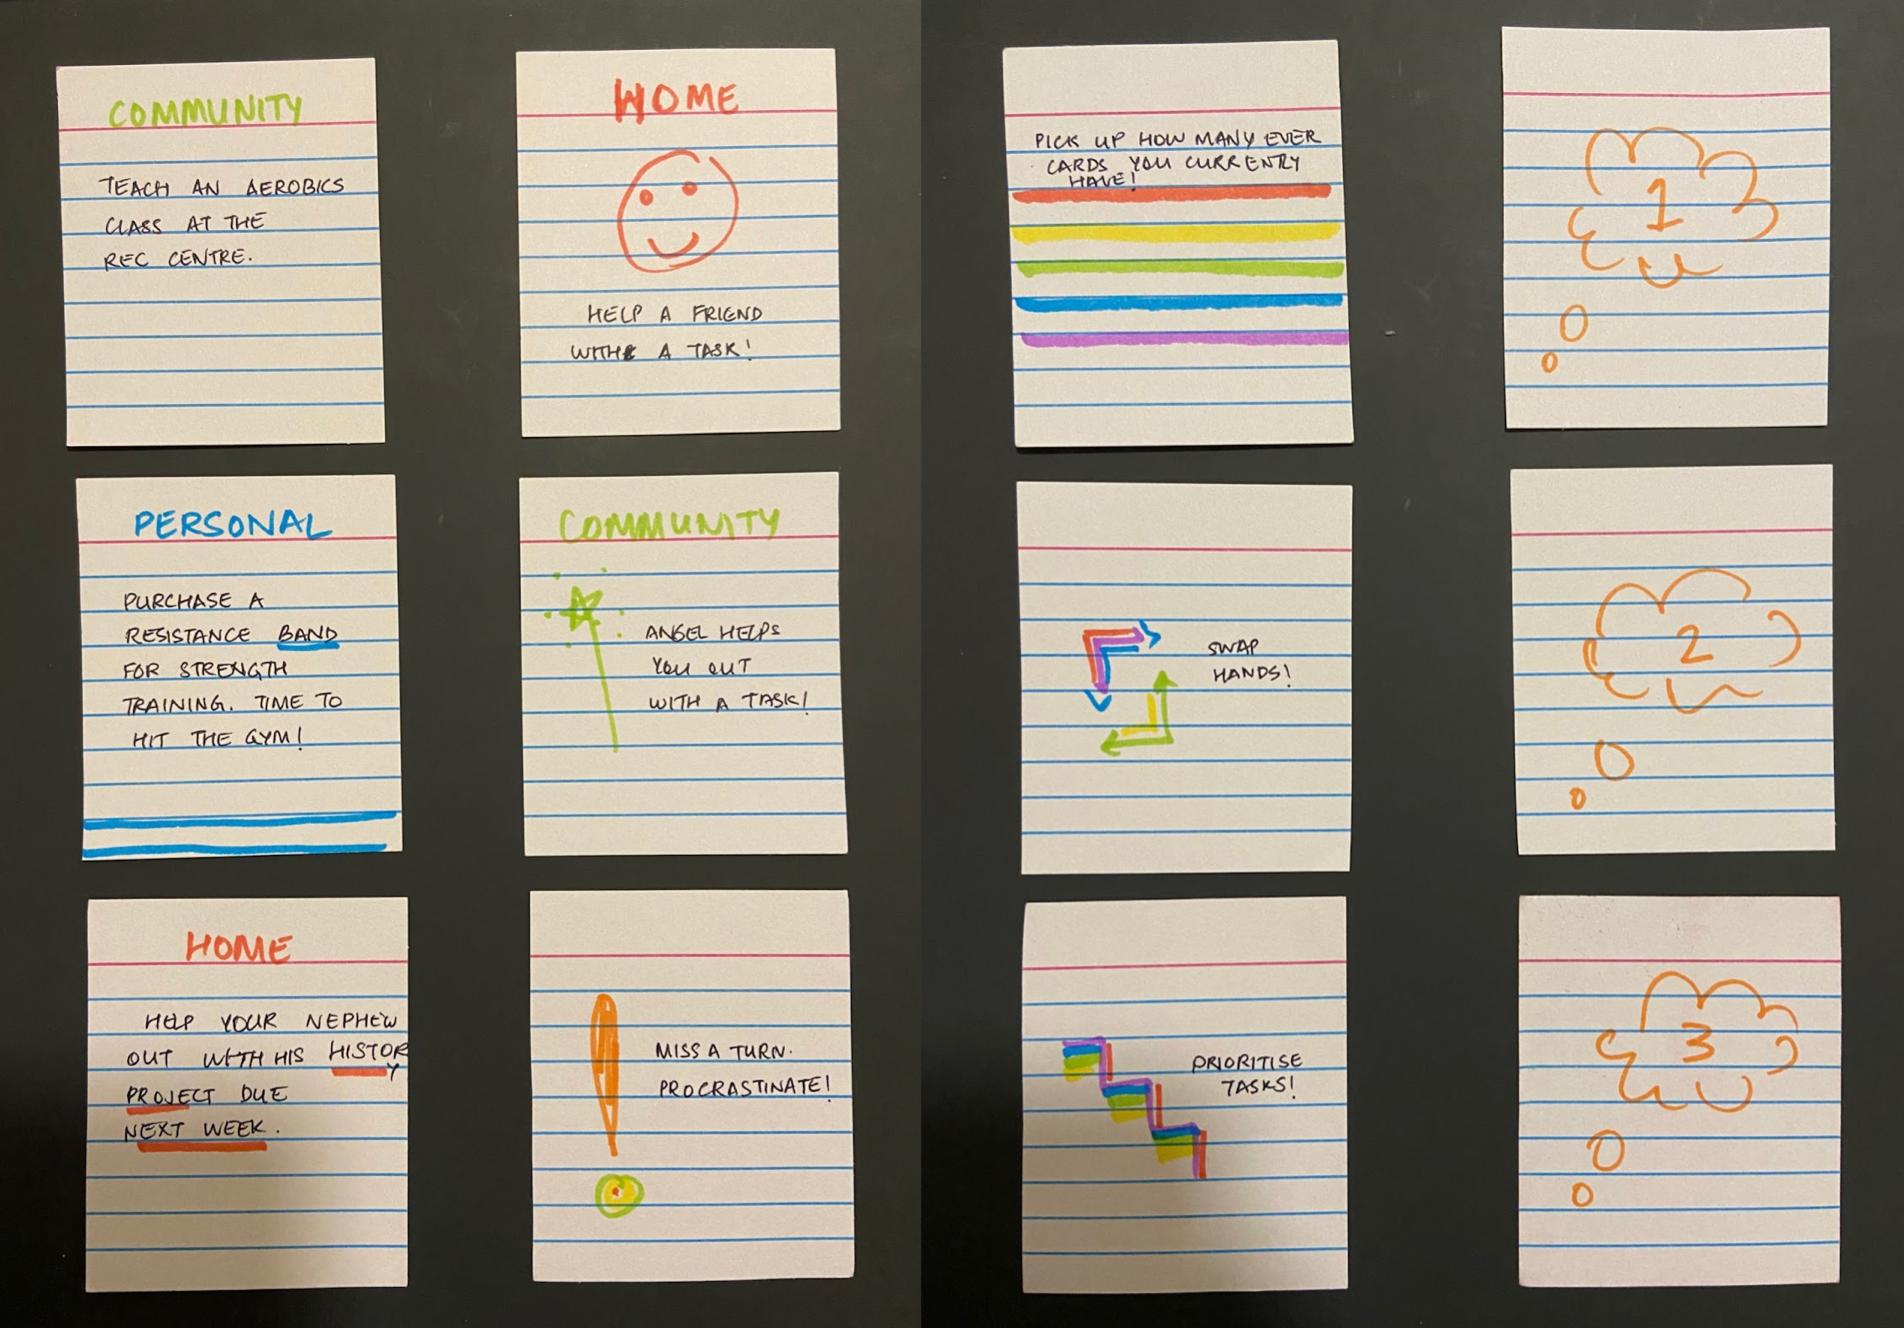 COMMUNITY
TEACH AN AEROBICS
CLASS AT THE
REC CENTRE.
HOME
HELP A FRIEND
WITH A TASK!
PICK UP HOW MANY EVER
CARDS YOU CURRENTLY
HAVE!
1
PERSONAL
PURCHASE A
RESISTANCE BAND
FOR STRENGTH
TRAINING. TIME TO
HIT THE GYM!
COMMUNITY
ANGEL HELPS
YOU OUT
WITH A TASK!
SWAP
HANDS!
2
HOME
HELP YOUR NEPHEW
OUT WITH HIS HISTORY
PROJECT DUE
NEXT WEEK.
MISS A TURN.
PROCRASTINATE!
PRIORITISE
TASKS!
3